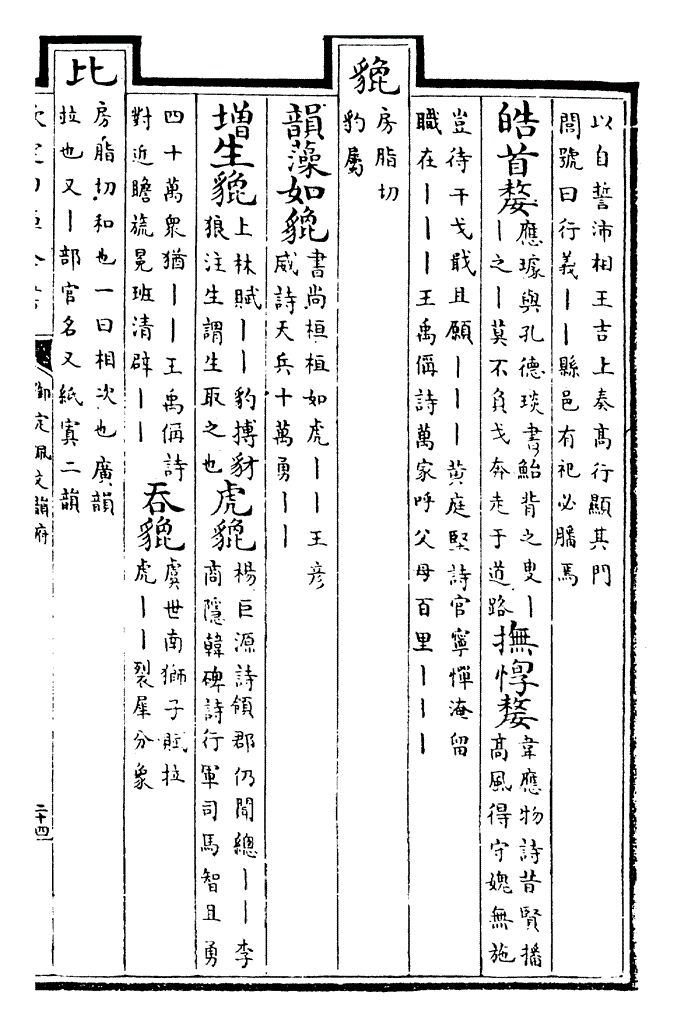 以自誓沛相王吉上奏髙行顯其門
閭號曰行義丨丨縣邑有祀必膰焉
皓首嫠
應璩與孔德琰書鮐背之叟丨
丨之丨莫不負戈奔走于道路
撫惸嫠
韋應物詩昔賢播
髙風得守媿無施
豈待干戈戢且願丨丨丨黄庭堅詩官寧憚淹留
職在丨丨丨王禹偁詩萬家呼父母百里丨丨丨
貔
房脂切
豹屬
韻藻如貔
書尚桓桓如虎丨丨王彦
威詩天兵十萬勇丨丨
增生貔
上林賦丨丨豹搏豺
狼注生謂生取之也
虎貔
楊巨源詩領郡仍聞總丨丨李
商隱韓碑詩行軍司馬智且勇
四十萬衆猶丨丨王禹偁詩
對近瞻旒晃班清辟丨丨
吞貔
虞世南獅子賦拉
虎丨丨裂犀分象
比
房脂切和也一曰相次也廣韻
拉也又丨部官名又紙寘二韻
御定佩文韻府
二十四